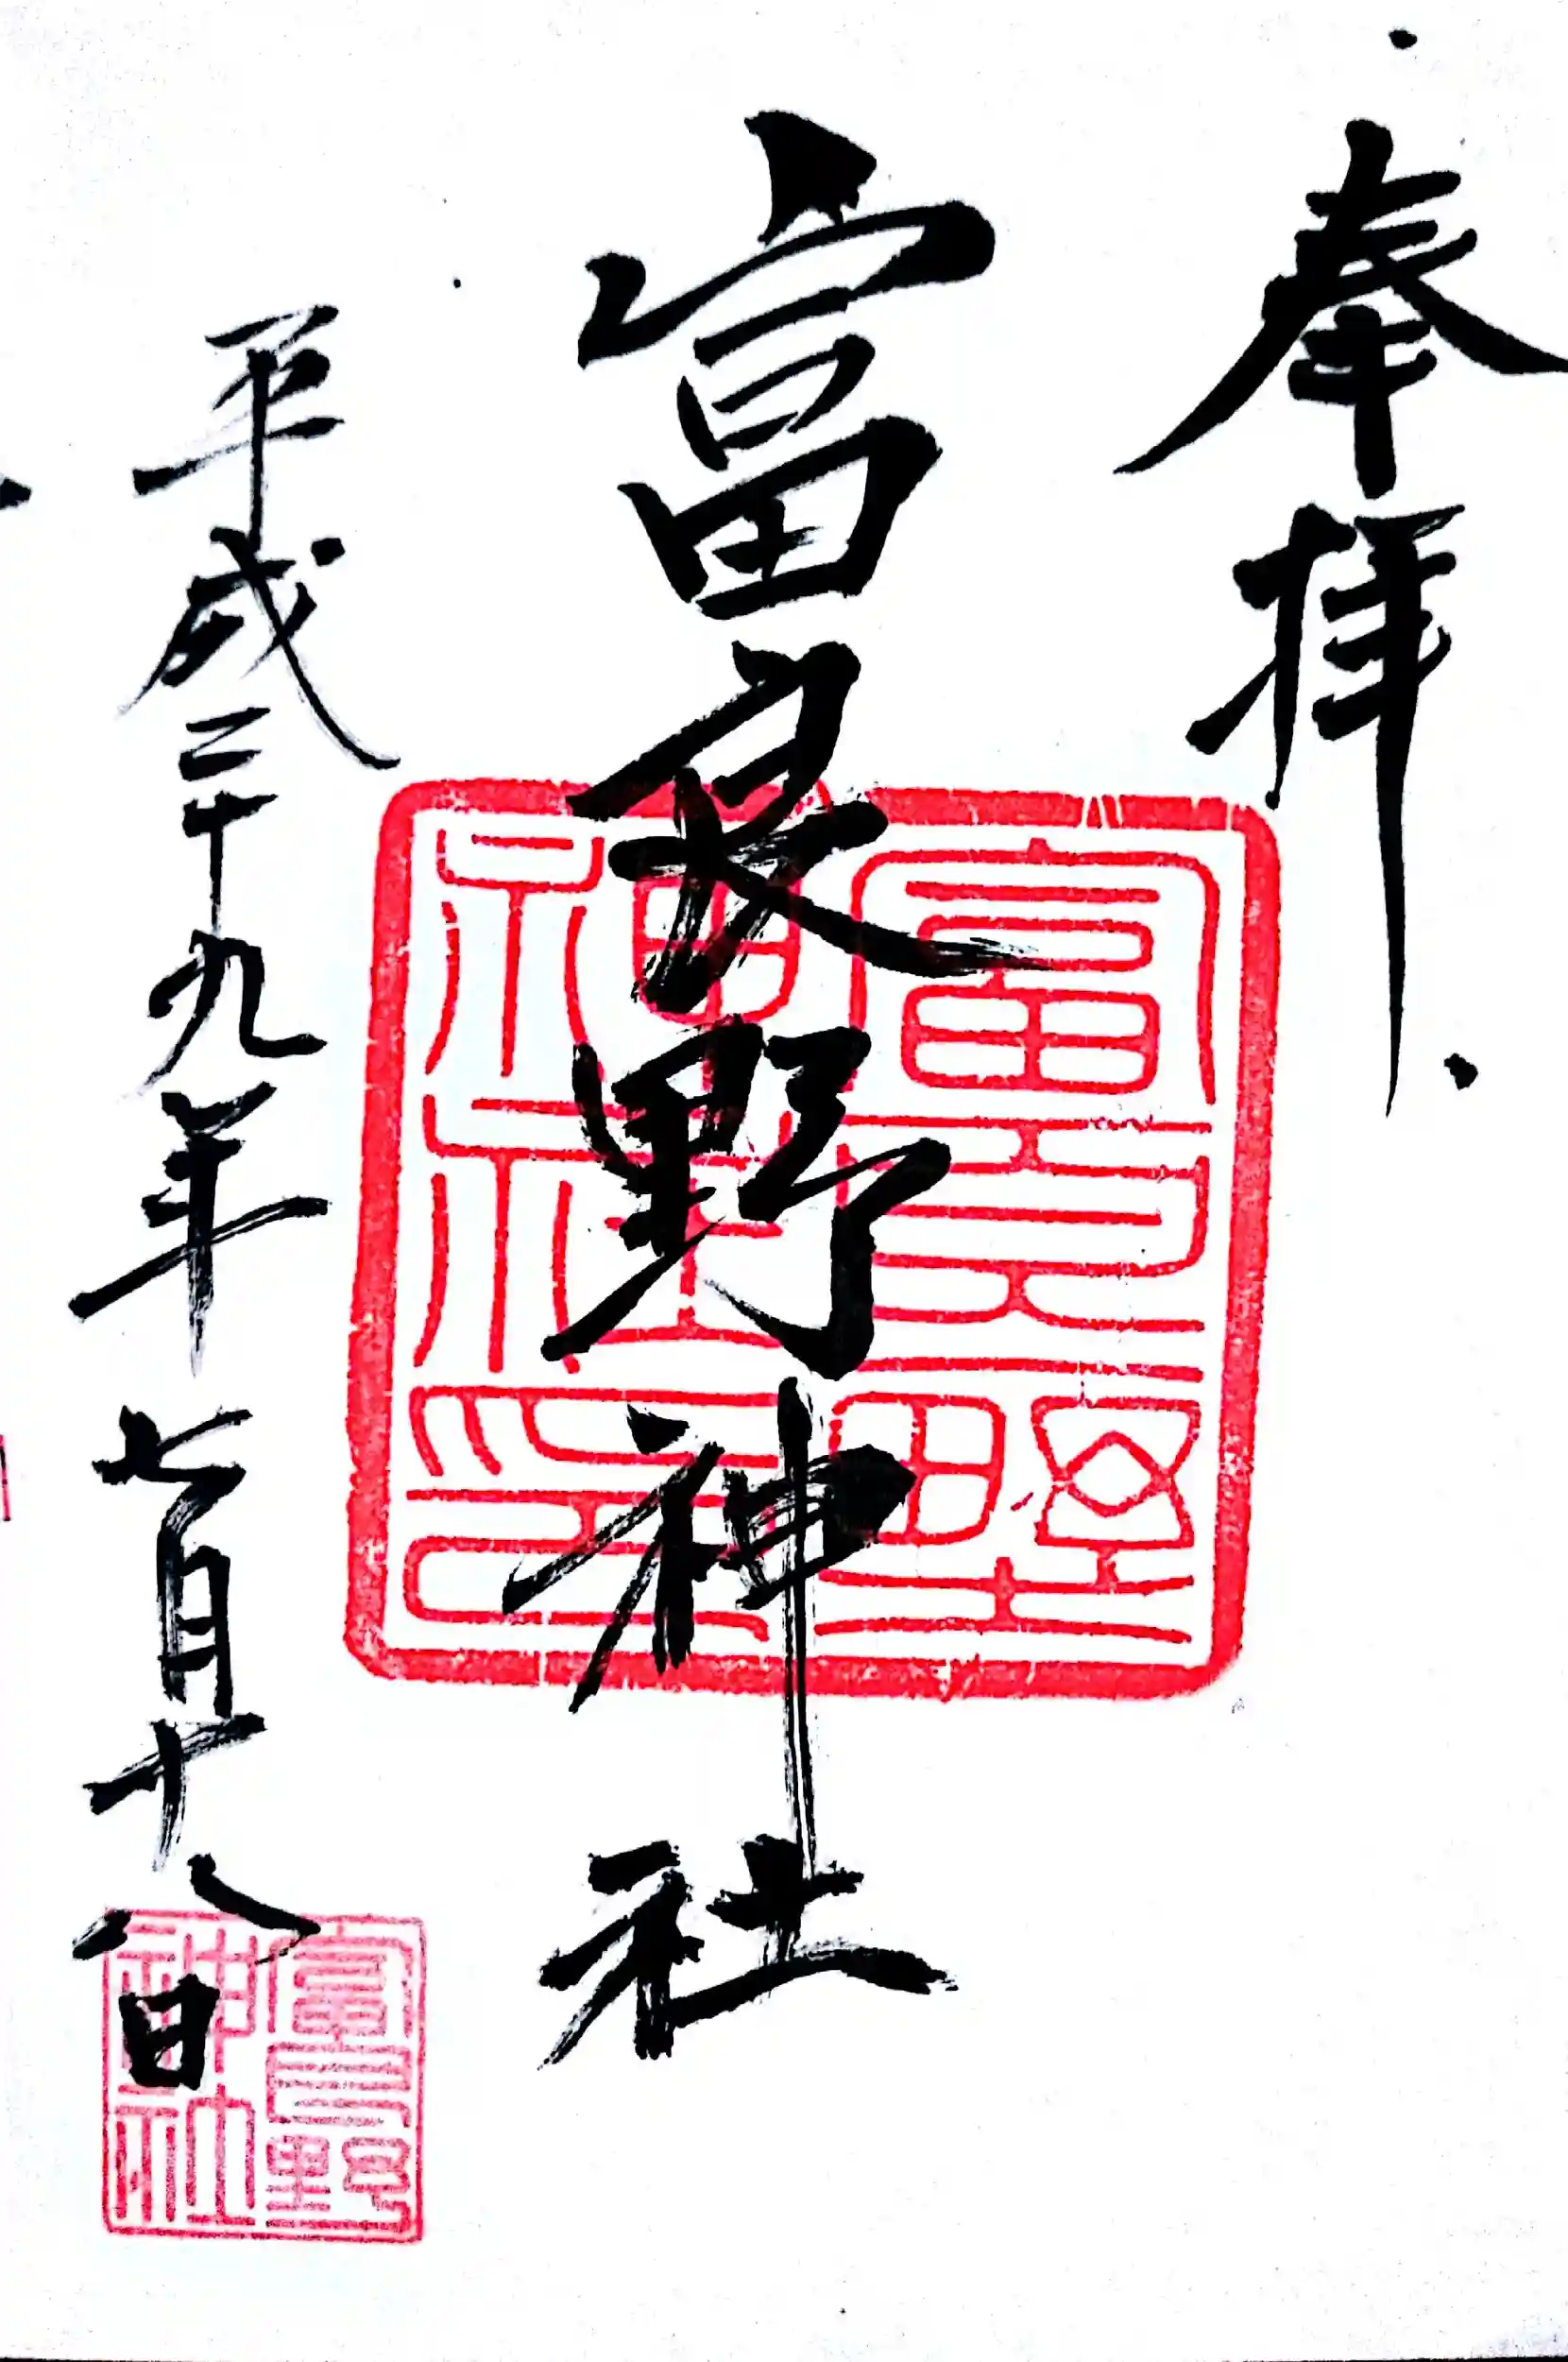 奉拝
富良野神社
富良野
神社印
平成二十九年七月十八日
富良野
神社